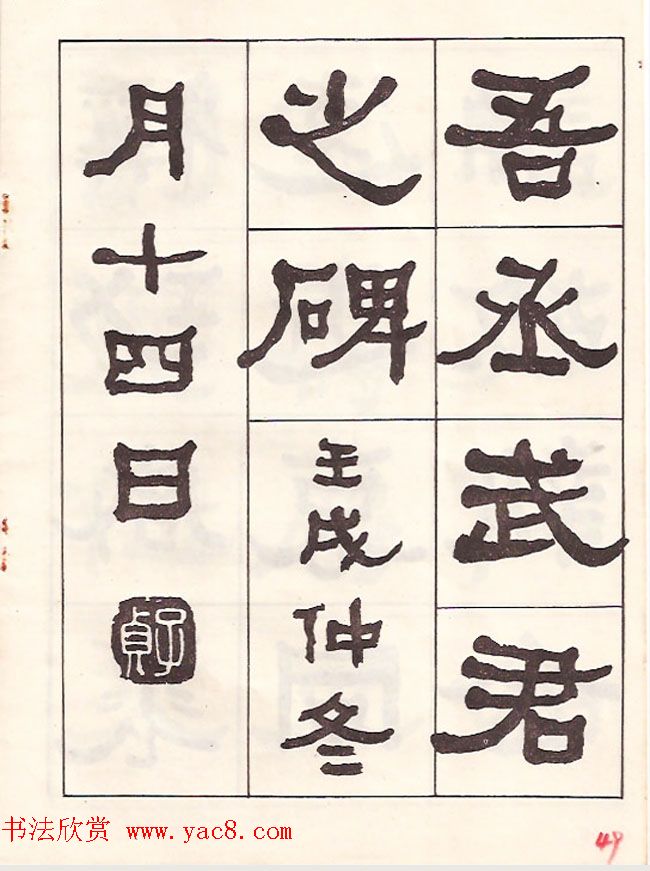 吾丞武君
之碑
壬戌仲冬
月十四日
书法欣赏 www.yac8.com
49